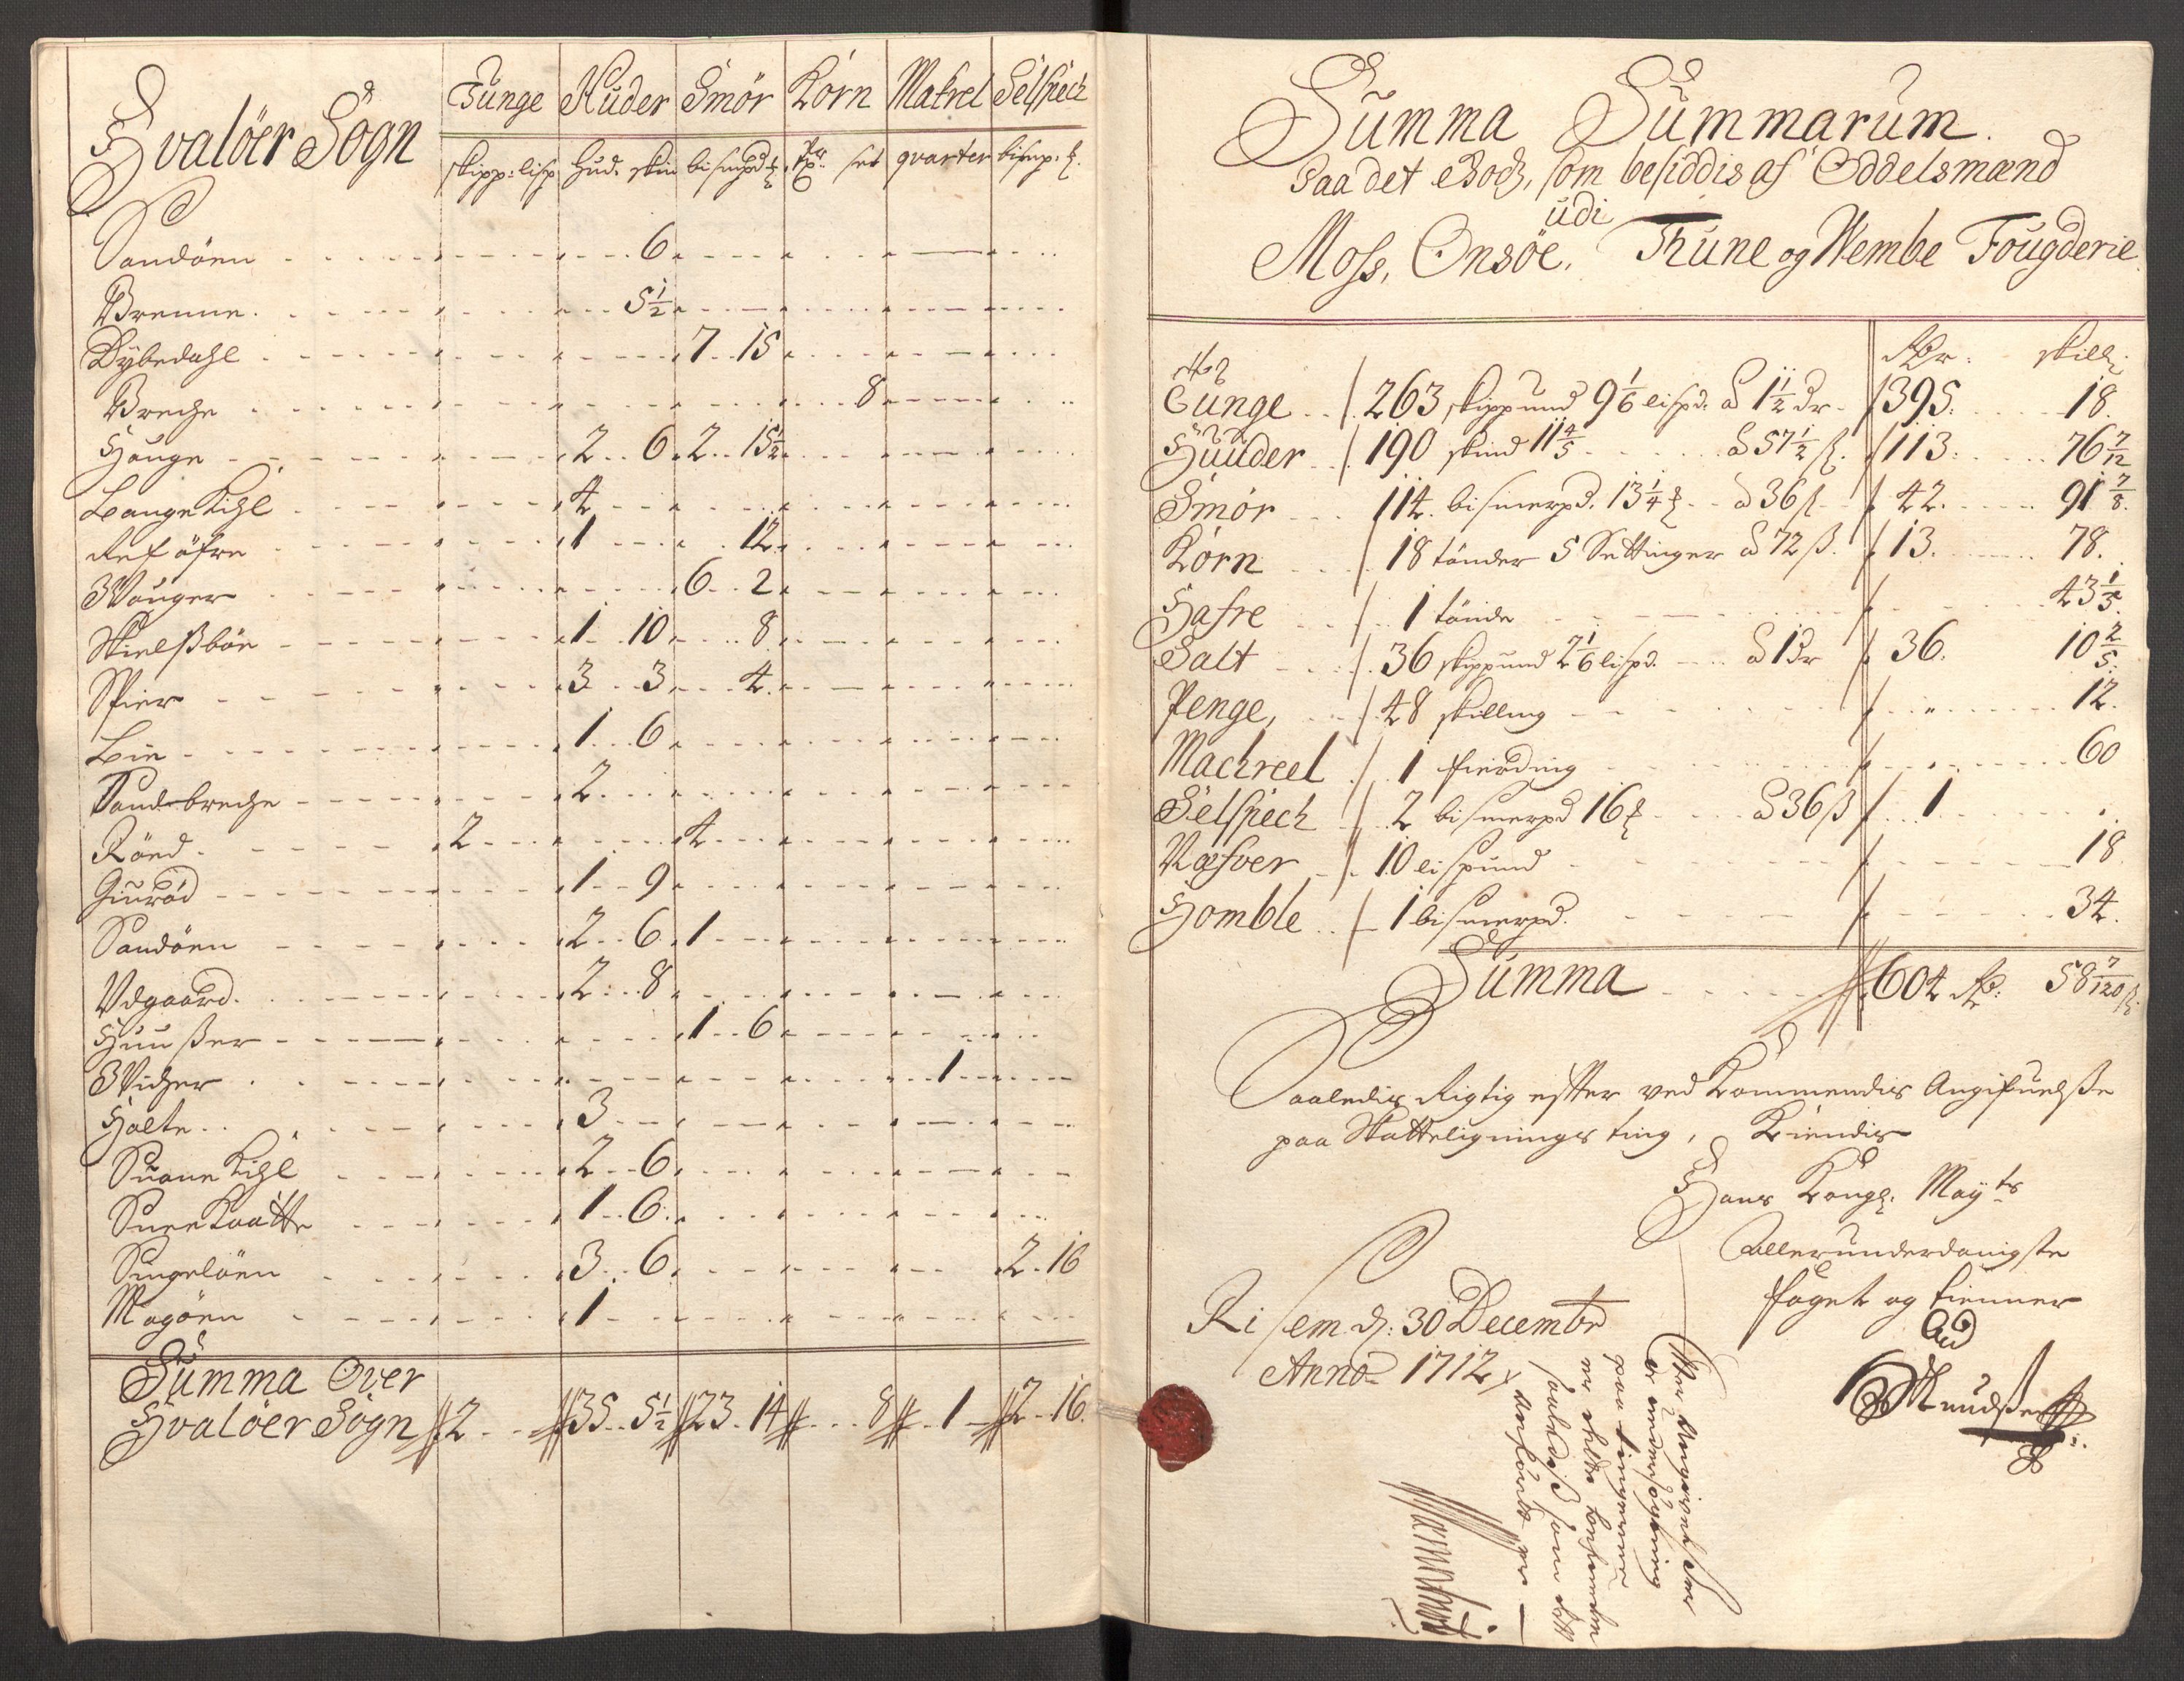 Hvalöer Sogn
Tunge Huder Smör Korn Makrel Selspech
skipp: lisp hud. skin bismpd set qvarter bismp.
Sandöen 6
Brenne 5 1/2
Dybedahl 7 15
Breche 8
Houge 2 6 2 15 1/2
Lange Kihl 4
Ref öfre 1 12
Wauger 6 2
Skielsbön 1 10 8
Spier 3 3 4
Lin 1 6
Sandbreche 2
Röed 2 4
Giuröd 1 9
Sandöen 2 6 1
Udgaard 2 8
Huußer 1 6
Wicher 1
Holte 3
Suane Kihl 2 6
Suenkaatte 1 6
Singelöen 3 6 2 16
Magöen 1
Summa Over
Hvalöer Sogn 2 35 5 1/2 23 14 8 1 2 16
Summa Summarum.
Paa det Godz, som besiddis af Oddelsmænd
udi
Moss, Onsöe, Thune og Wembe Fougderie.
Rdr: skill:
Tunge 263 skippund 9 1/6 lispd. à 1 1/2 dr 395. 18.
Huuder 190 skind 11 4/5 à 57 1/2 ß. 113. 76 7/12
Smör 114. bismerpd. 13 1/4 à 36 ß 42. 91 7/8.
Korn 18 tönder 5 Settinger à 72 ß. 13. 78.
Hafre 1 tönde 43 1/5.
Salt 36 skippund 2 1/6 lispd. à 1 dr 36. 10 2/5.
Penge, 48 skilling 12.
Machreel 1 fierding 60
Selspech 2 bismerpd 16 à 36 ß 1
Næfver 10 lispund 18.
Homble 1 bismerpd. 34.
Summa 604 Rd: 58 7/120 ß
Saaledis Rigtig effter ved kommendis Angifvelße
paa Skatteligningsting, Kiendis
Hans Kongl. Mayts
Allerunderdanigste
foget og tienner
Risem d: 30 Decembr
Anno 1712